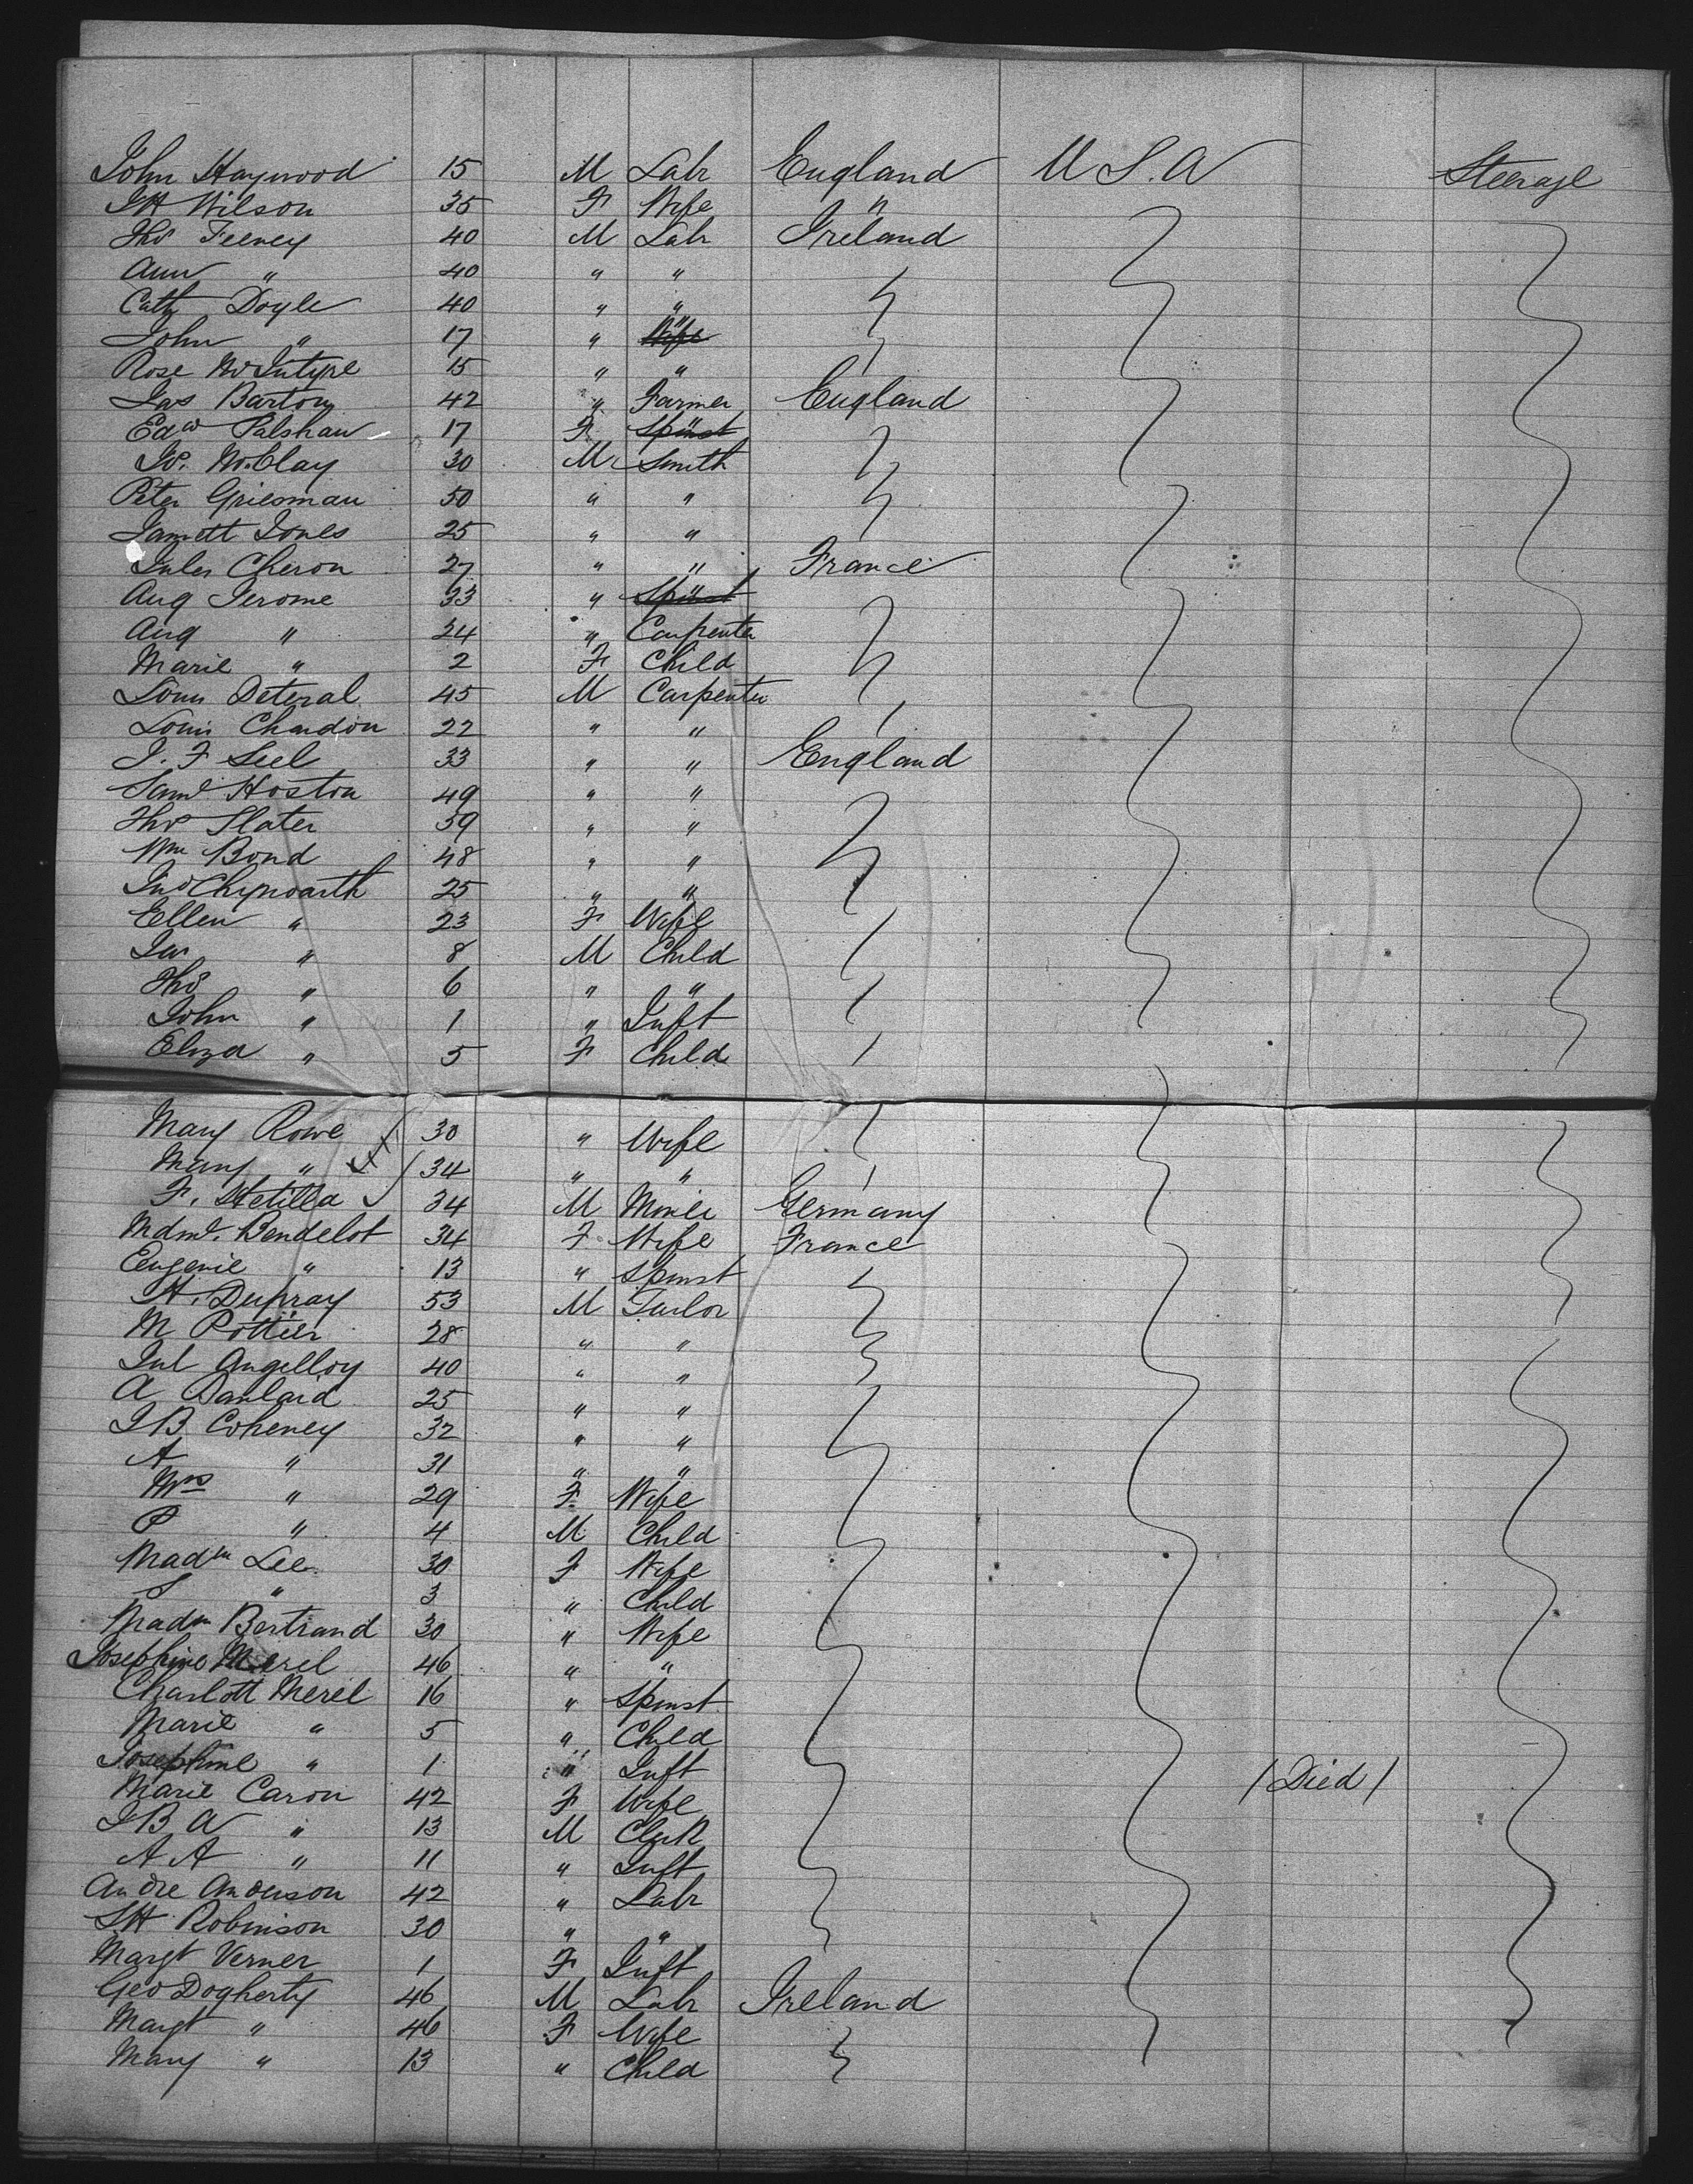 John Haywood 15 M Labr England U S. A Steerage
J H Wilson 35 F Wife "
Thos Feeney 40 M Labr Ireland
Ann " 40 " "
Cath Doyle 40 " "
John " 17 " Wife "
Rose McIntyre 15 " "
Jas Barton 42 " Farmer England
Edw Palshaw 17 F Spinst
Jos. McClay 30 M Smith
Peter Griesman 50 " "
Jones 25 " "
Jules Cheron 27 " " France
Aug Jerome 33 " Spinst "
Aug " 24 " Carpenter
Marie " 2 F Child
Louis Deteral 45 M Carpenter
Louis Chardon 22 " "
J. F Seel 33 " " England
Saml Hoston 49 " "
Thos Slater 39 " "
Wm Bond 48 " "
Jno Chynoarth 25 " "
Ellen " 23 F Wife
" 8 M Child
Thos " 6 " "
John " 1 " Inft
Eliza " 5 F Child
Mary Rowe 30 " Wife
Mary " 34 " "
F. Stetilla 34 M Miner Germany
Mdme. Bendelot 34 F Wife France
Eugenie " 13 " Spinst
H. Dupray 53 M Tailor
M Pottier 28 " "
Jul Angelloy 40 " "
A Danlard 25 " "
J B Coheney 32 " "
A " 31 " "
Mrs " 29 F Wife
P " 4 M Child
Madm Lee 30 F Wife
S " 3 " Child
Madm Bertrand 30 " Wife
Josephine Merel 46 " "
Charlott Merel 16 " Spinst
Marie " 5 " Child
Josephine " 1 " Inft / Died /
Marie Caron 42 F Wife
J B A " 13 M Clerk
A A " 11 " Inft
Andre Anderson 42 " Labr
S H Robinson 30 " "
Margt Verner 1 F Inft
Geo Dogherty 46 M Labr Ireland
Margt " 46 F Wife
Mary " 13 " Child